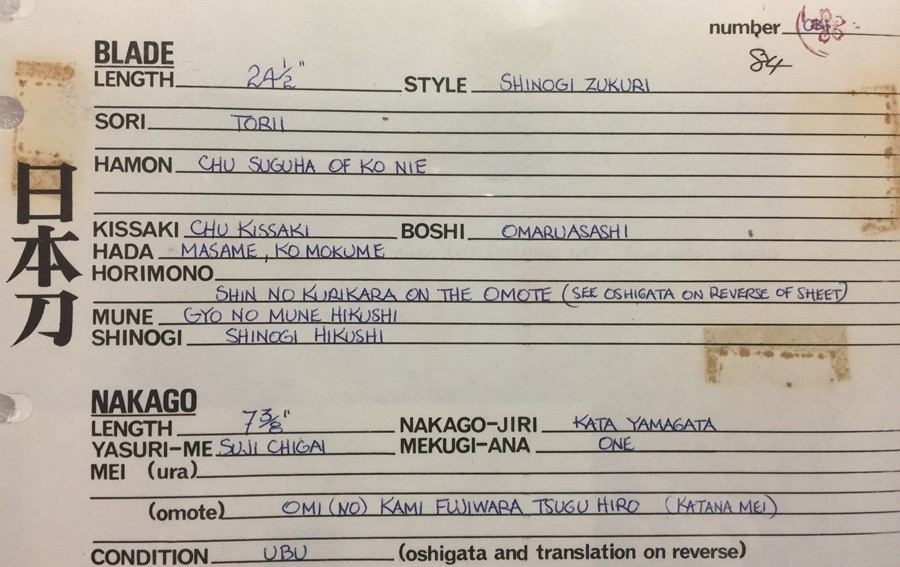 number
84
BLADE
LENGTH 24½" STYLE SHINOGI ZUKURI
SORI TORII
HAMON CHU SUGUHA OF KO NIE
KISSAKI CHU KISSAKI BOSHI OMARUASASHI
HADA MASAME, KO MOKUME
HORIMONO
SHIN NO KURIKARA ON THE OMOTE (SEE OSHIGATA ON REVERSE OF SHEET)
MUNE GYO NO MUNE HIKUSHI
SHINOGI SHINOGI HIKUSHI
日本刀
NAKAGO
LENGTH 7⅜" NAKAGO-JIRI KATA YAMAGATA
YASURI-ME SUJI CHIGAI MEKUGI-ANA ONE
MEI (ura)
(omote) OMI (NO) KAMI FUJIWARA TSUGU HIRO (KATANA MEI)
CONDITION UBU (oshigata and translation on reverse)